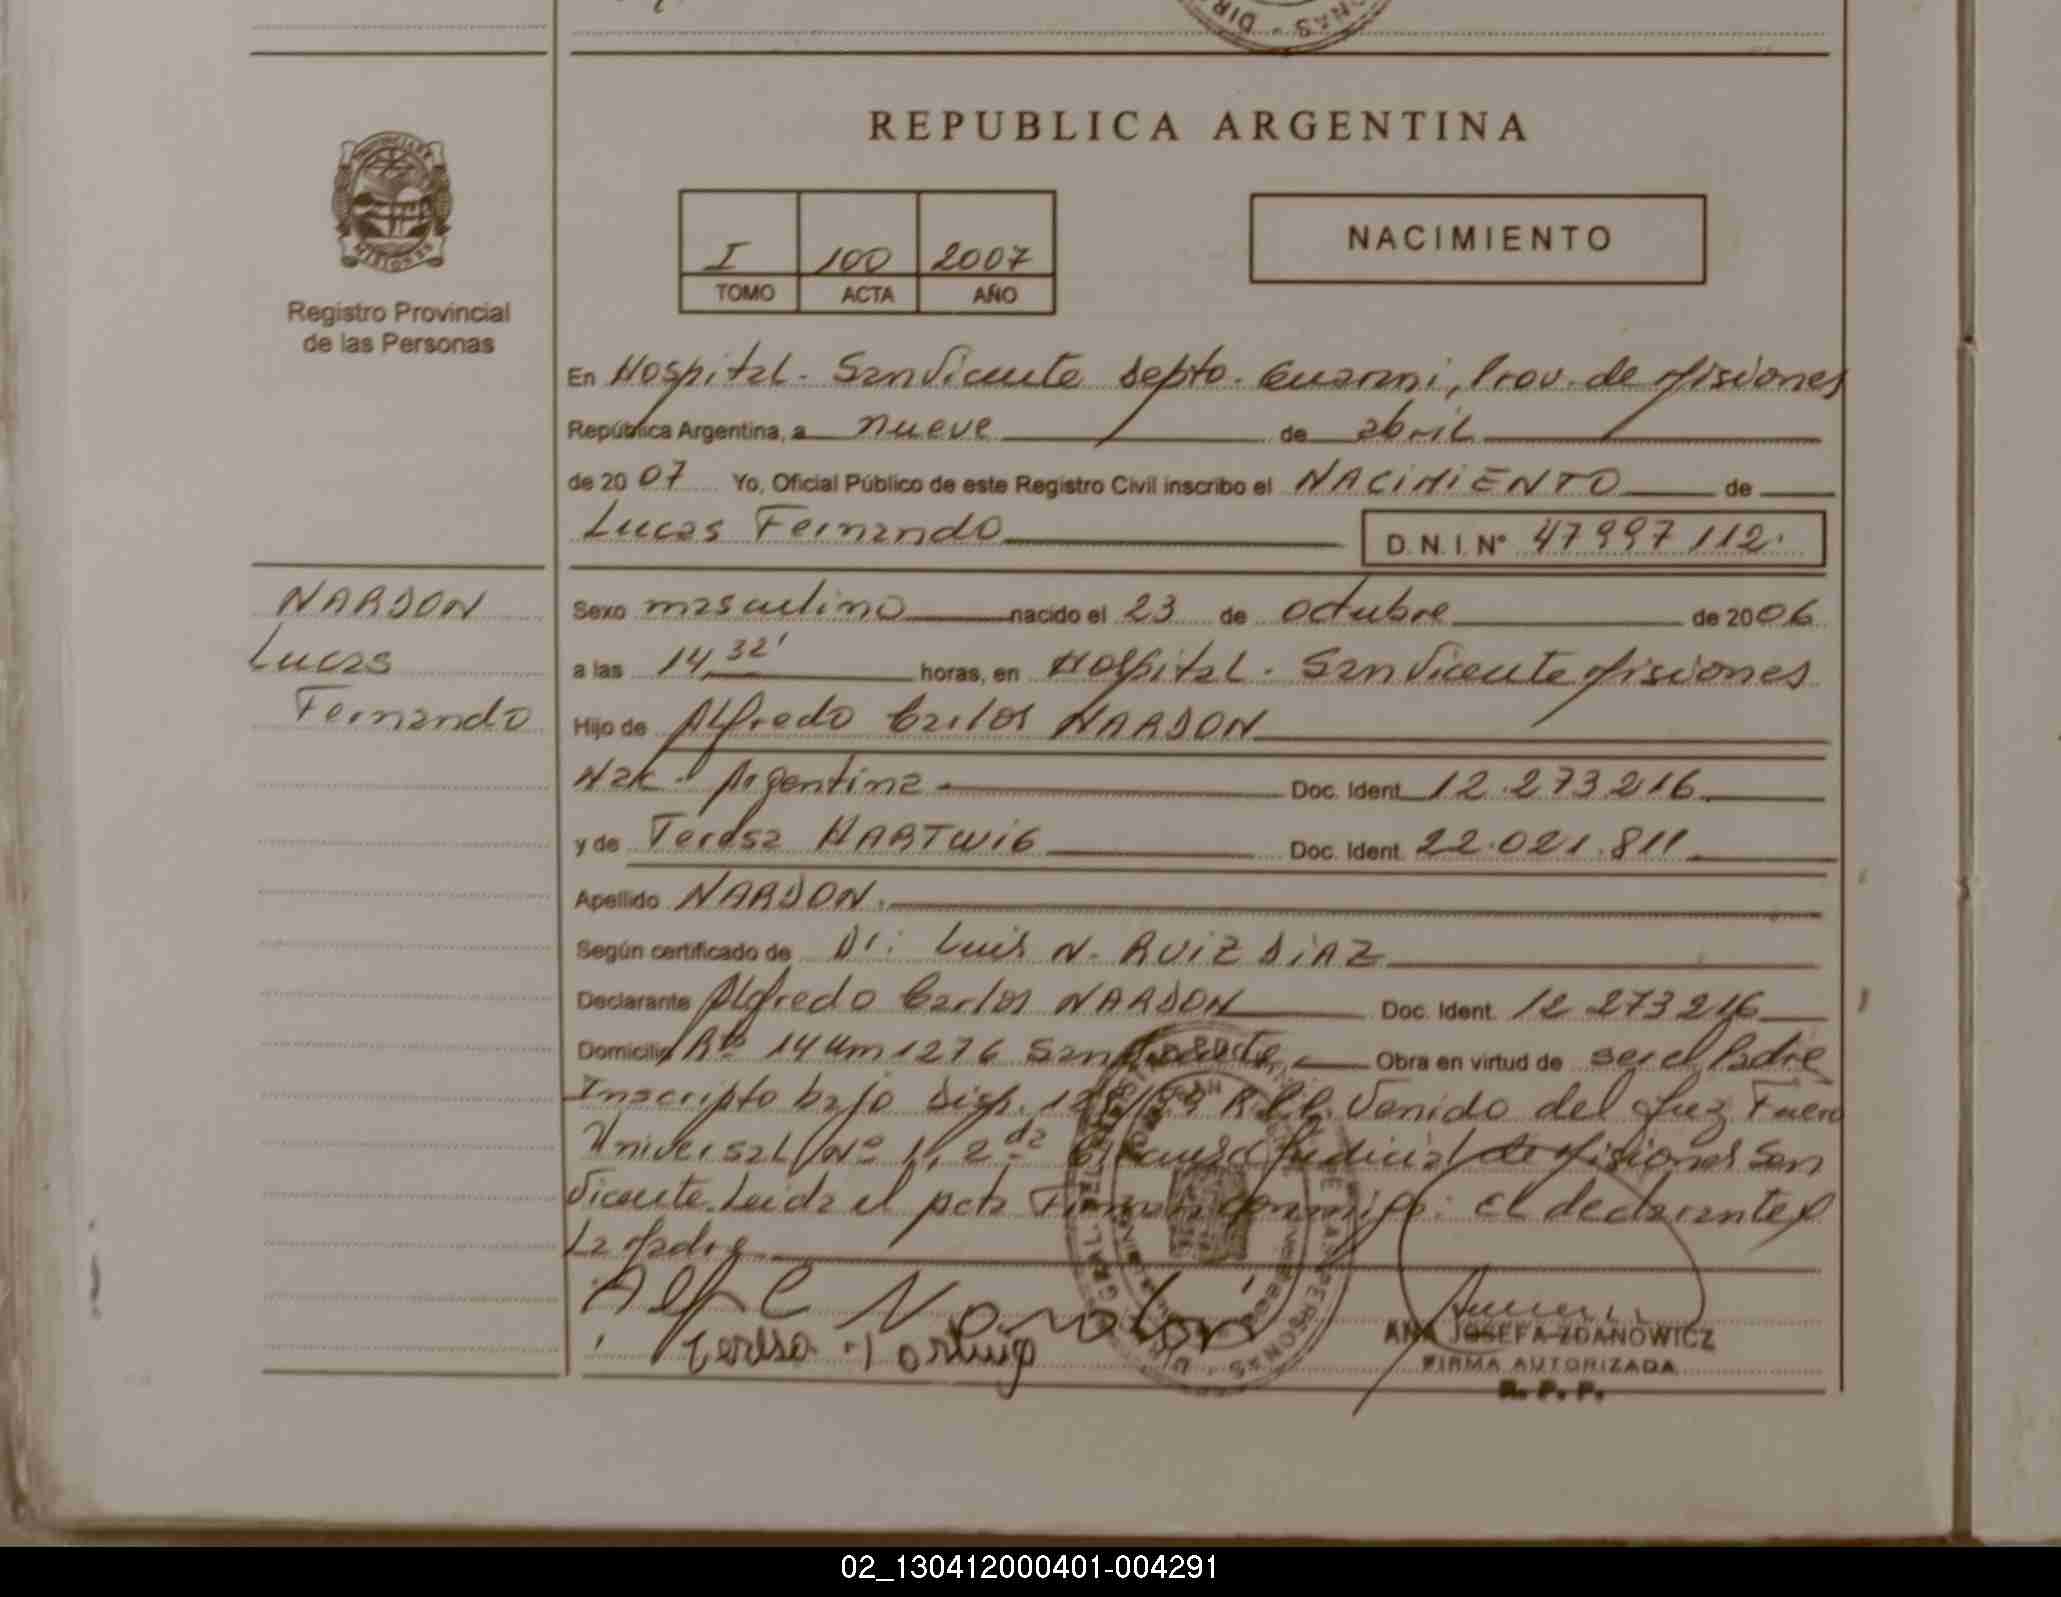 REPUBLICA ARGENTINA
I 100 2007
TOMO ACTA AÑO
NACIMIENTO
MISIONES
Registro Provincial
de las Personas
En Hospital - San Vicente depto. Guarani, Prov. de Misiones
República Argentina, a nueve de abril
de 2007 Yo, Oficial Público de este Registro Civil inscribo el NACIMIENTO de
Lucas Fernando D.N.I. N° 47997112.
NARDON
Lucas
Fernando
Sexo masculino nacido el 23 de octubre de 2006
a las 14,32' horas, en Hospital - San Vicente Misiones
Hijo de Alfredo Carlos NARDON
Nac. Argentina Doc. Ident. 12.273.216
y de Teresa HARTWIG Doc. Ident. 22.021.811
Apellido NARDON.
Según certificado de Dr: Luis N. RUIZ DIAZ
Declarante Alfredo Carlos NARDON Doc. Ident. 12 273 216
Domicilio Rta 14 Km 1276 San Vicente, Obra en virtud de ser el Padre
Inscripto bajo Disp. R.P.P. Venido del Juez Fuero
Universal Nº 1, 2da Judicial de Misiones San
Vicente. Leida el acta Firman conmigo: El declarante y
La Madre
Alf C Nardon
Teresa Hartwig
ANA JOSEFA ZDANOWICZ
FIRMA AUTORIZADA
R. P. P.
02_130412000401-004291